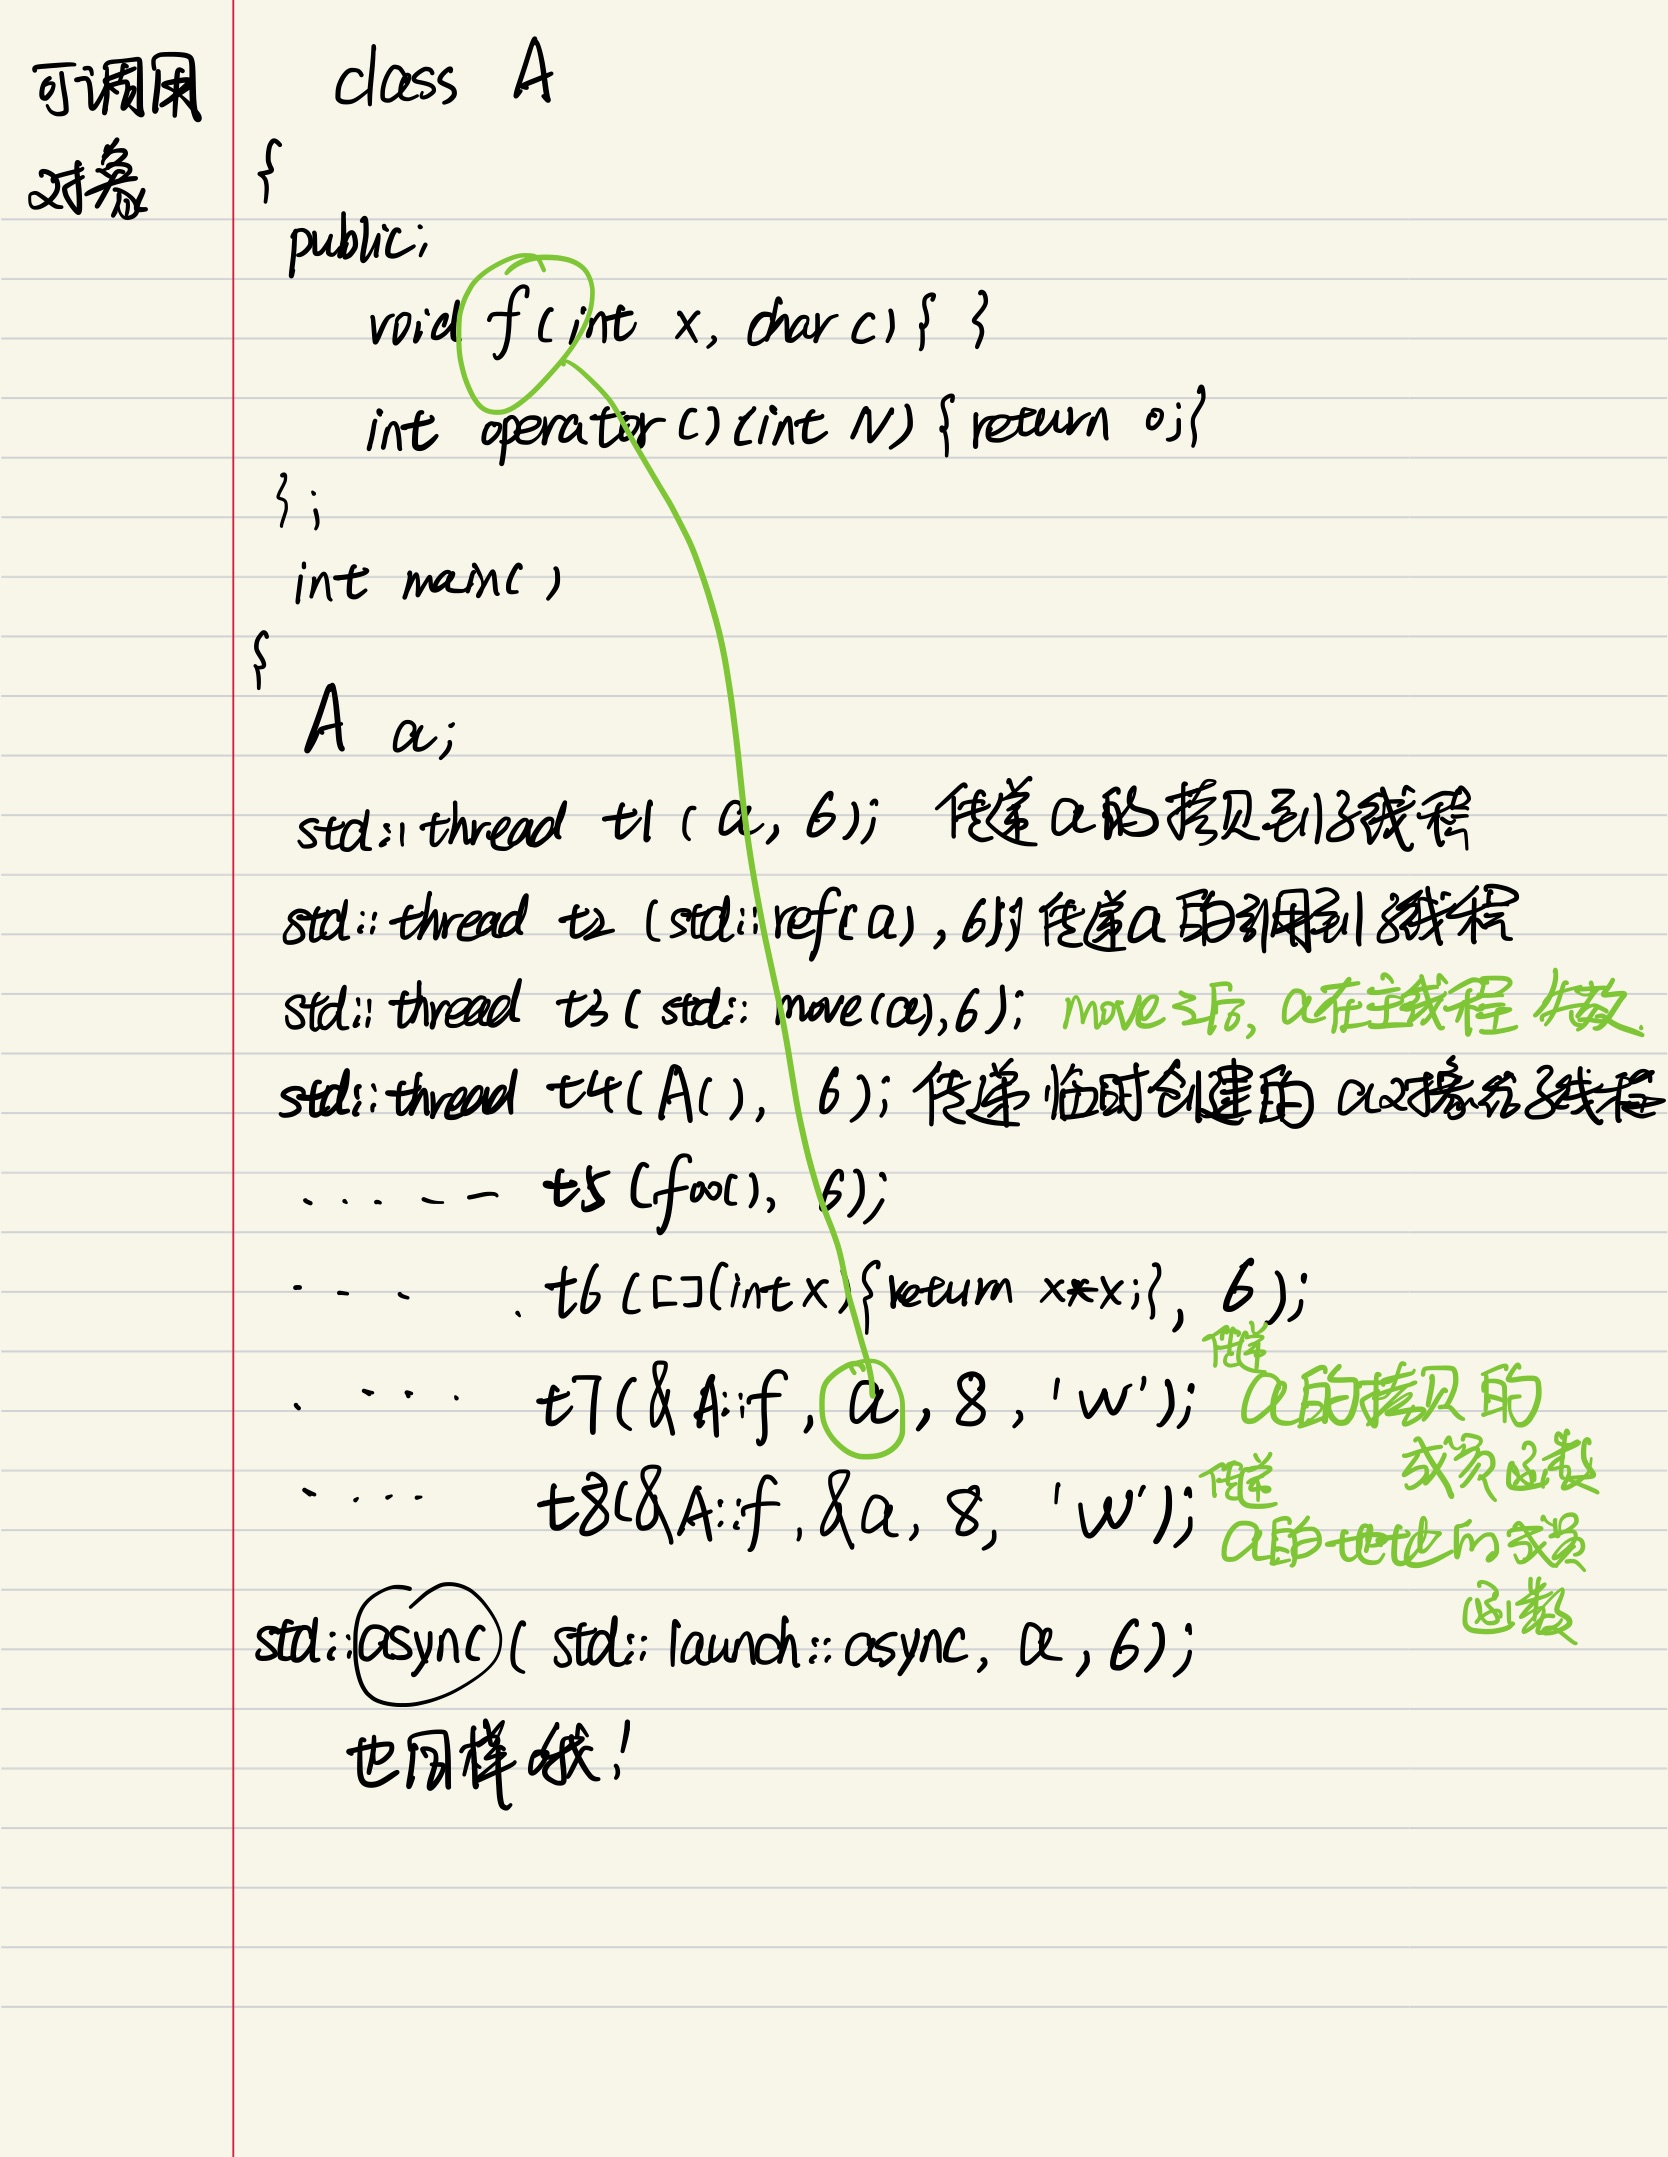 可调用
对象
class A
{
public:
void f(int x, char c) { }
int operator()(int N) { return 0; }
};
int main()
{
A a;
std::thread t1(a, 6); 传递a的拷贝到子线程
std::thread t2(std::ref(a), 6); 传递a的引用到子线程
std::thread t3(std::move(a), 6); move之后, a在主线程失效.
std::thread t4(A(), 6); 传递临时创建的a对象给子线程
..... — — t5(foo(), 6);
. - - . t6([](int x){return x*x;}, 6);
. - - . t7(&A::f, a, 8, 'w'); 传递
a的拷贝的
成员函数
- . . . t8(&A::f, &a, 8, 'w'); 传递
a的地址的成员
函数
std::async(std::launch::async, a, 6);
也同样哦!